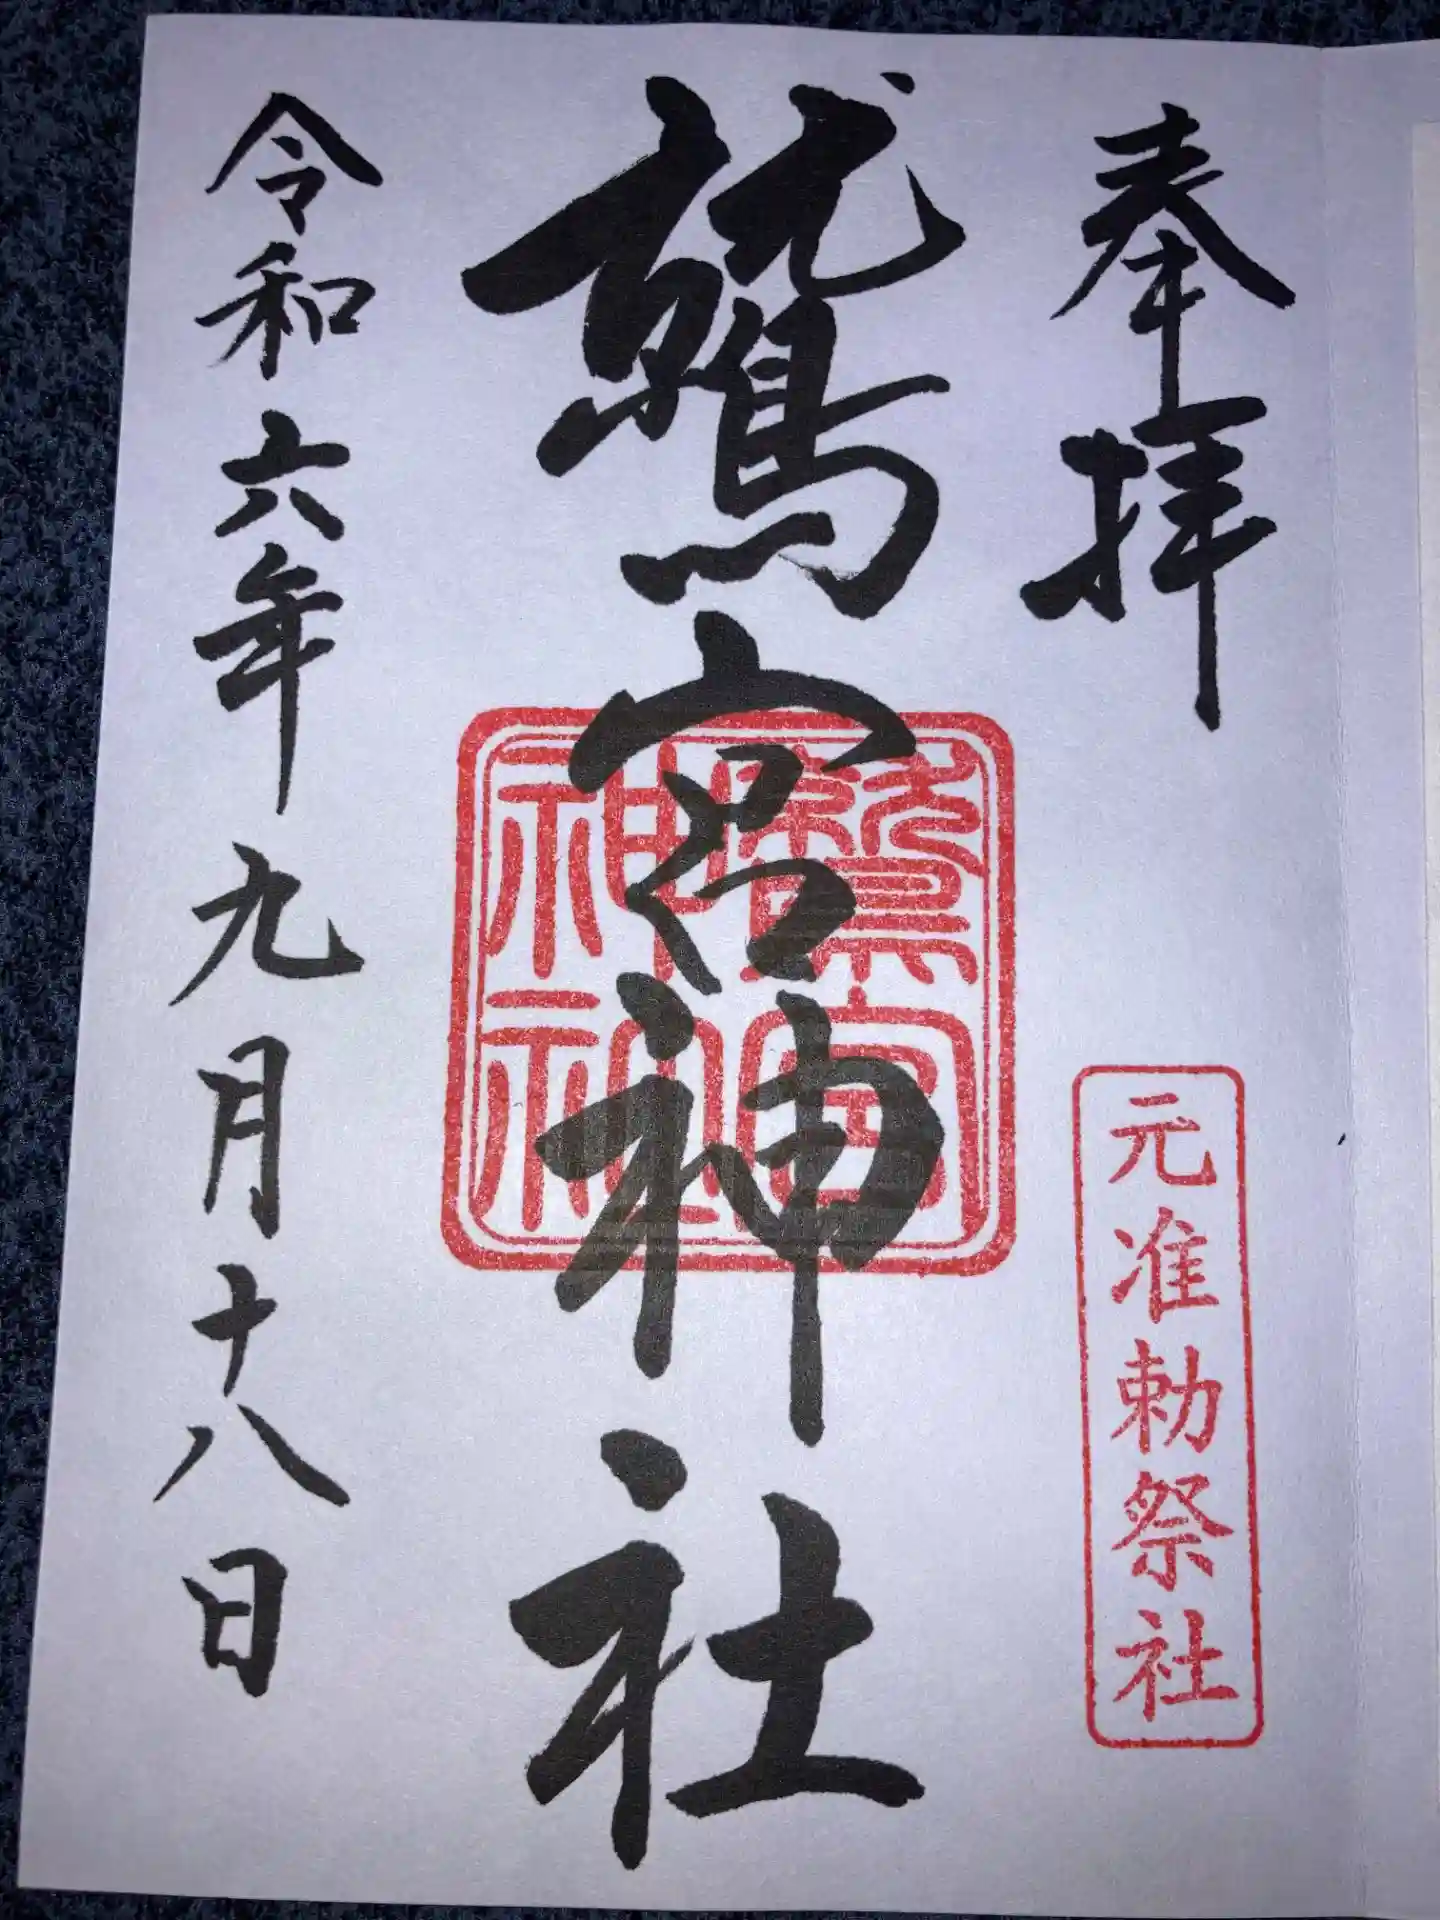 奉拝
元准勅祭社
鷲宮神社
鷲宮
神社
令和六年九月十八日